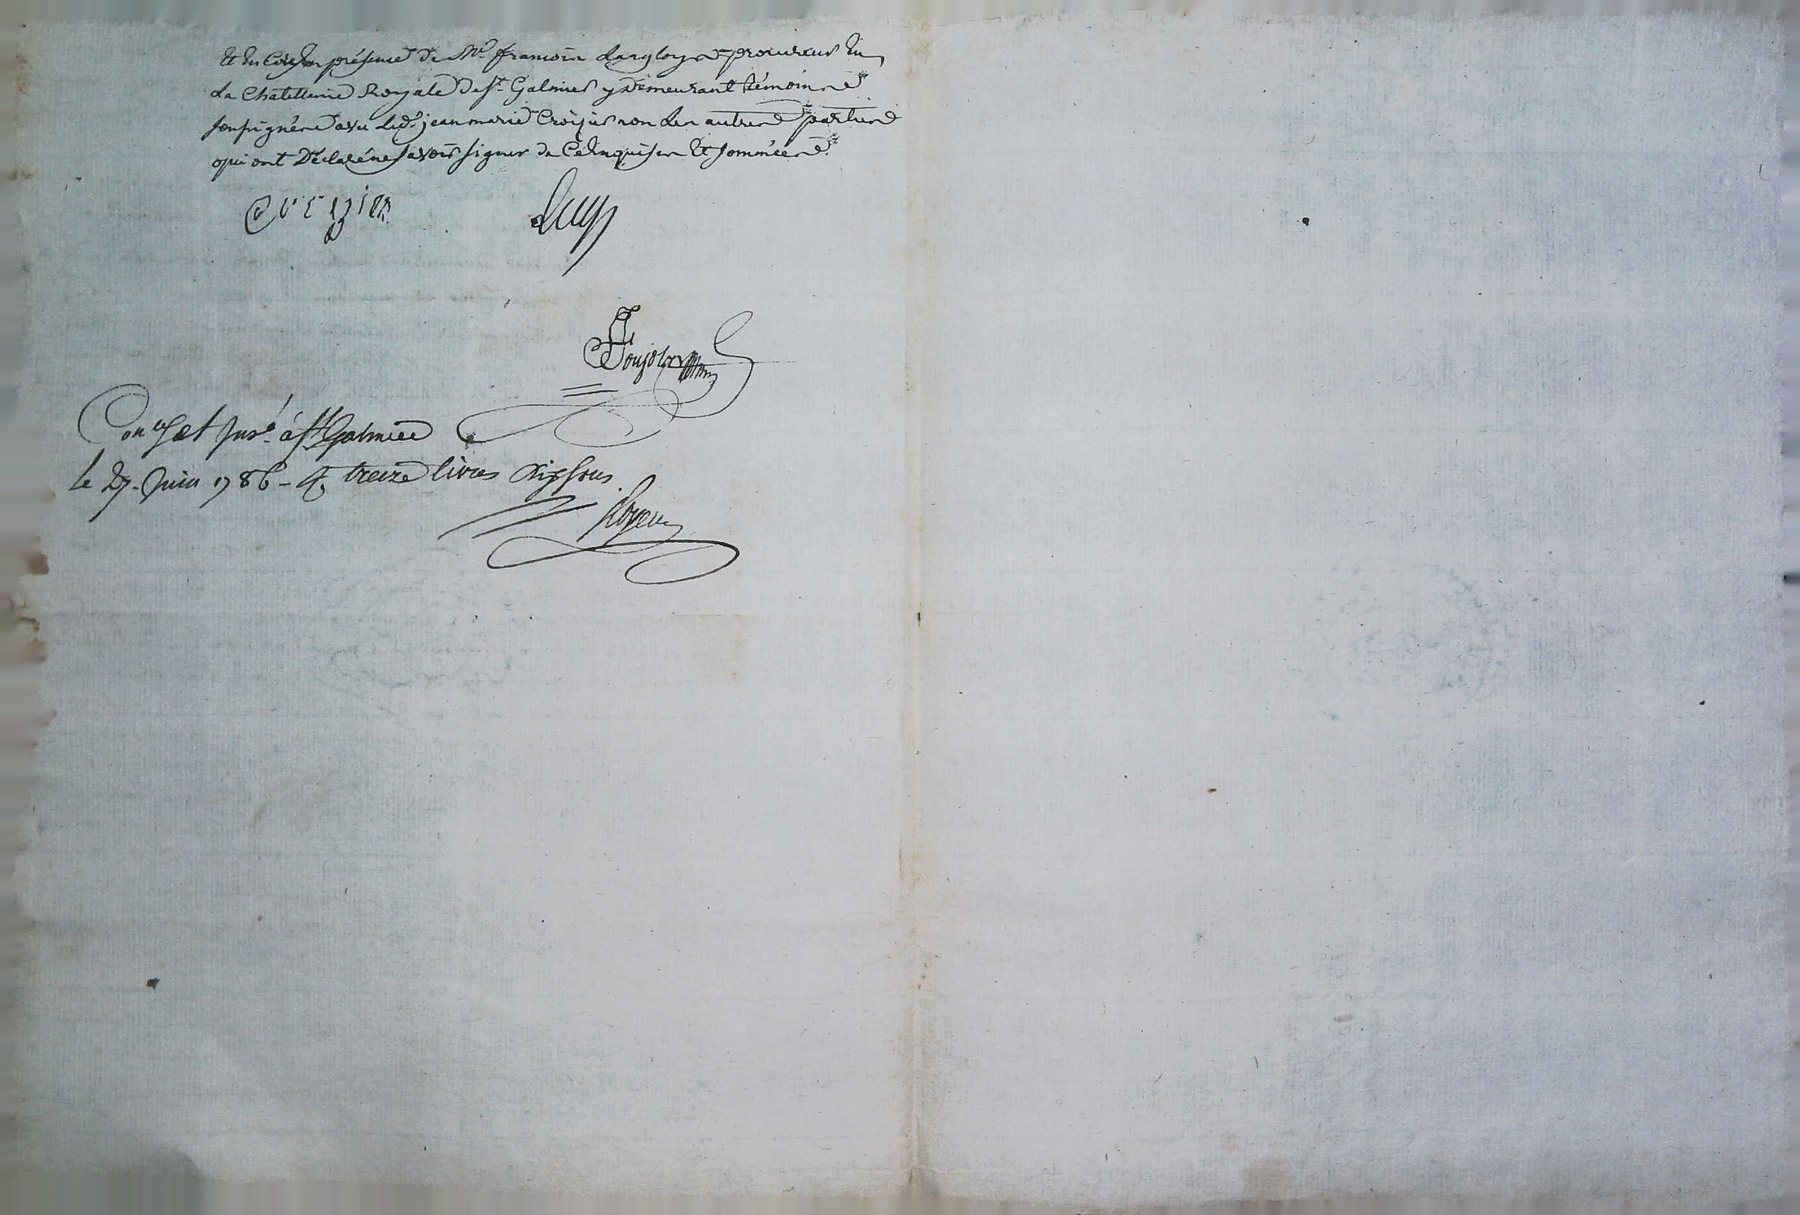 Et En Core En présence de Me. françois Langloys procureur En
La Chatellenie Royale de St. Galmier y demeurant témoins
soussignés avec Led. jean marie Croizier non Les autres parties
qui ont Déclaré ne savoir signer de Ce Enquis et sommées
Croizier
Ponjolas
Conlé et Insé. à St Galmier
le 27. Juin 1786 - R. treize livres dix sous